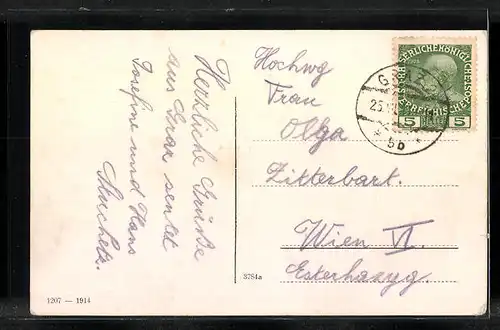 Herzliche Grüße
aus Graz sendet
Josefine und Hans
Hochwg
Frau
Olga
Zitterbart.
Wien VI.
Esterhazyg.
GRAZ
25.
* 5b *
KAISERLICHE KÖNIGLICHE
ÖSTERREICHISCHE POST
5 5
3764a
1207 — 1914